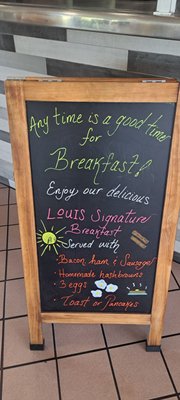 Any time is a good time
for
Breakfast!
Enjoy our delicious
Louis Signature
Breakfast
Served with
• Bacon, ham & Sausage
• Homemade hashbrowns
• 3 eggs
• Toast or Pancakes